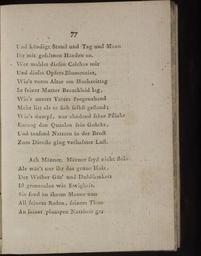 77
Und kündigt Stund und Tag und Mann
Ihr mit gefaltnen Händen an.
Wer mahlet diesen Calchas mir
Und dieses Opfers Blumenzier,
Wie's vorm Altar am Hochzeittag
In seiner Mutter Brautkleid lag,
Wie's unters Vaters Seegenshand
Mehr list als er sich selbst gestand;
Wie's dumpf, nur ahndend seine Pflicht
Entzog den Qualen sein Gesicht,
Und tausend Nattern in der Brust
Zum Dienste ging verhaßter Lust.
Ach Männer, Männer seyd nicht stolz
Als wär't nur ihr das grüne Holz,
Der Weiber Güt' und Duldsamkeit
Ist grenzenlos wie Ewigkeit.
Sie fand an ihrem Manne nun
All seinem Reden, seinem Thun
An seiner plumpen Narrheit gar